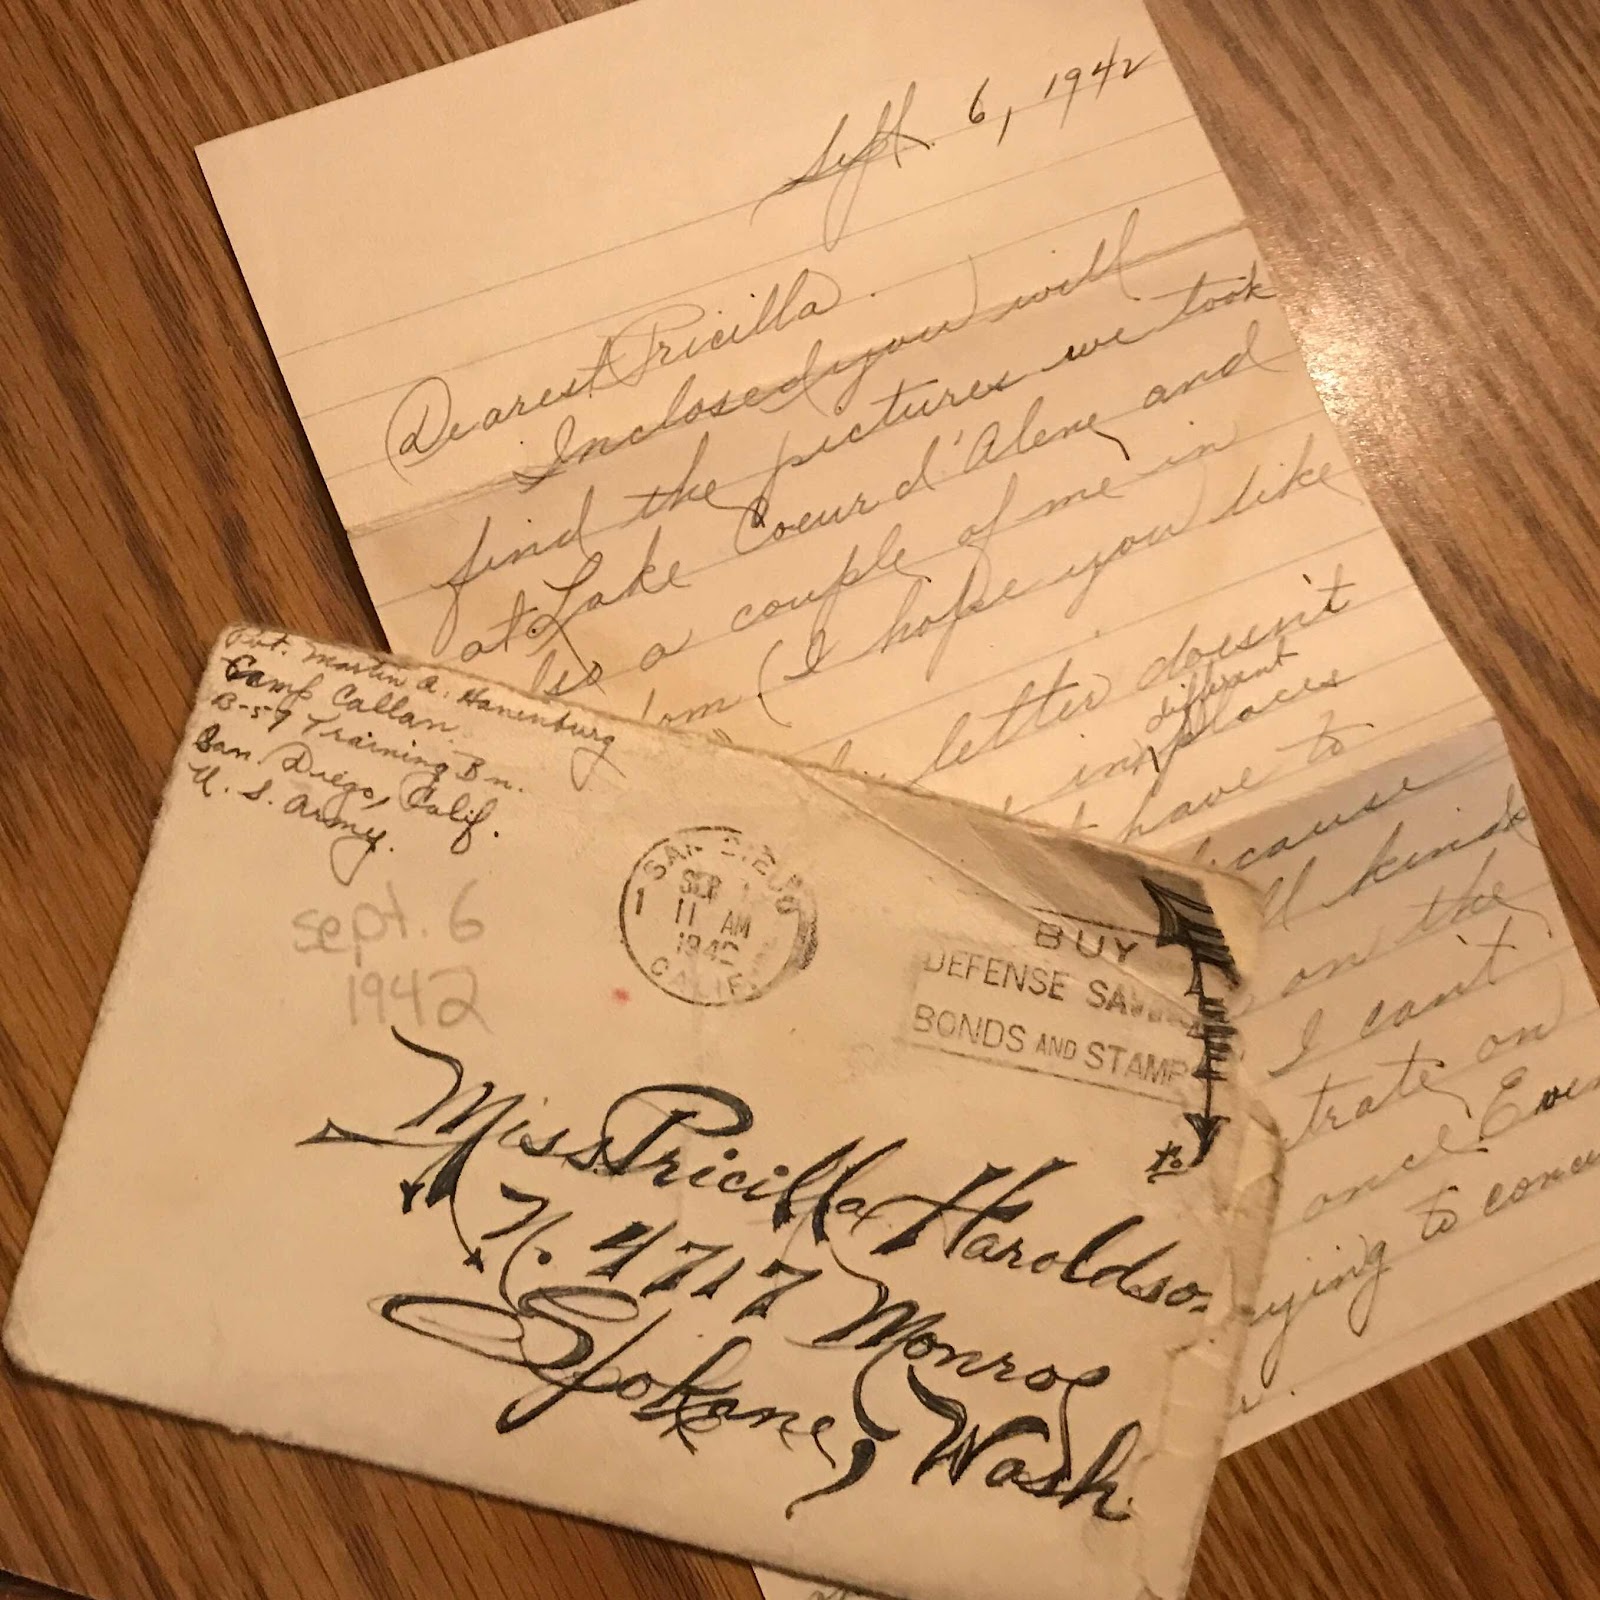 Sept. 6, 1942
Dearest Pricilla.
Inclosed you will
find the pictures we took
at Lake Coeur d'Alene and
lso a couple of me in
(I hope you like
letter doesn't
different
in places
have to
cause
kinds
on the
I can't
trate on
once. Even
ying to concen
Pvt. Martin A. Hanenburg
Camp Callan.
B-59 Training Bn.
San Diego, Calif.
U. S. Army.
sept. 6
1942
SAN DIEGO
SEP
11 AM
1942
CALIF
BUY
DEFENSE SAVINGS
BONDS AND STAMPS
to
Miss Pricilla Haroldso
N. 4717 Monroe
Spokane, Wash.